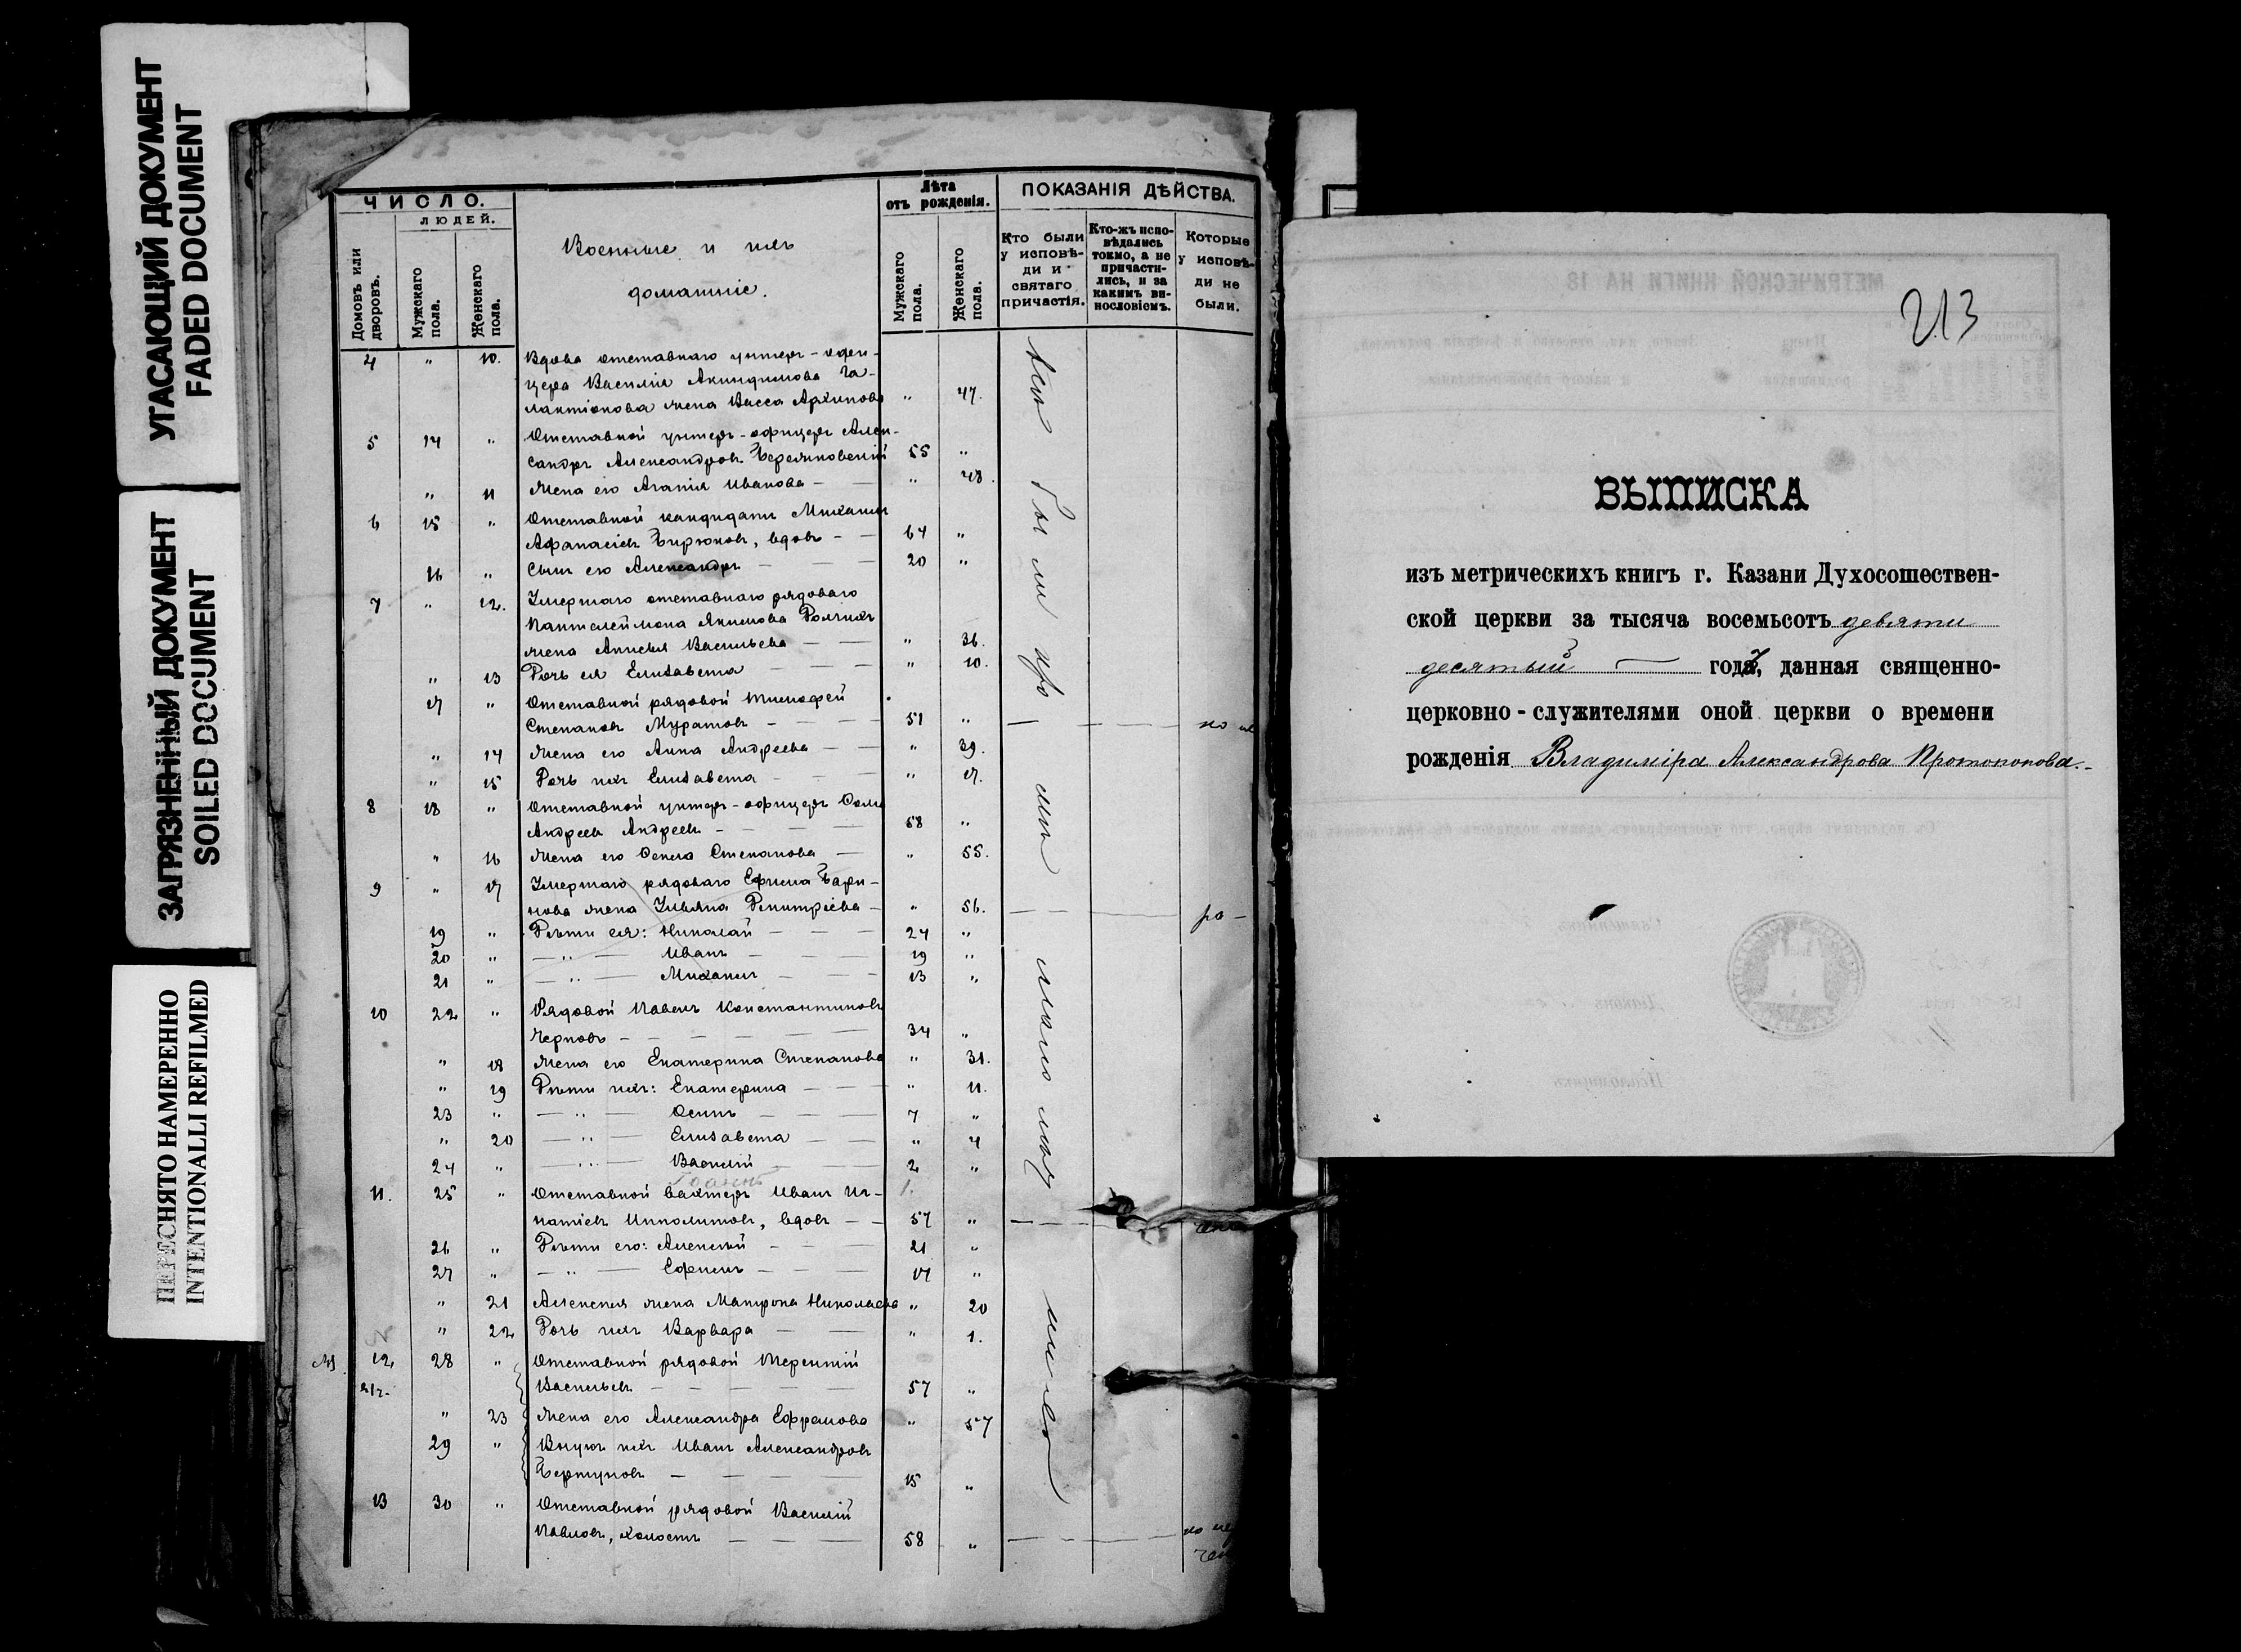 УГАСАЮЩИЙ ДОКУМЕНТ
FADED DOCUMENT
ЗАГРЯЗНЕННЫЙ ДОКУМЕНТ
SOILED DOCUMENT
ПЕРЕСНЯТО НАМЕРЕННО
INTENTIONALLI REFILMED
ЧИСЛО.
ЛЮДЕЙ.
Домовъ или дворовъ.
Мужскаго пола.
Женскаго пола.
Военные и ихъ
домашніе.
Лѣта
отъ рожденія.
Мужскаго пола.
Женскаго пола.
ПОКАЗАНІЯ ДѢЙСТВА.
Кто были у исповѣди и святаго причастія.
Кто-жъ исповѣдались токмо, а не причастились, и за какимъ винословіемъ.
Которые у исповѣди не были.
4 " 10. Вдова отставнаго унтеръ-офи-
цера Василія Акиндинова Га-
лактіонова жена Васса Архипова " 47.
5 14 " Отставной унтеръ-офицеръ Алек-
сандръ Александровъ 55 "
" 11 Жена его Агапія Иванова — — " 48.
6 15 " Отставной кандидатъ Михаилъ
Афанасіевъ Бирюковъ, вдовъ — — 64 "
16 " Сынъ его Александръ — — — 20 "
7 " 12. Умершаго отставнаго рядоваго
Пантелеймона Якимова
жена Анисья Васильева — — " 36.
" 13 Дочь ея Елизавета — — — " 10.
17 " Отставной рядовой Тимофей
Степановъ Муратовъ — — — 51 "
" 14 Жена его Анна Андреева — — " 39.
" 15 Дочь ихъ Елизавета — — — " 17.
8 18 " Отставной унтеръ-офицеръ Фома
Андреевъ Андреевъ — — — — 58 "
" 16 Жена его Фекла Степанова — " 55.
9 " 17 Умершаго рядоваго Ефима Бари-
нова жена Ульяна Димитріева — " 56.
19 " Дѣти ея: Николай — — — 24 "
20 " — " — Иванъ — — — 19 "
21 " — " — Михаилъ — — — 13 "
10 22 " Рядовой Павелъ Константиновъ
Черновъ — — — — — 34 "
" 18 Жена его Екатерина Степанова " 31.
" 19 Дѣти ихъ: Екатерина — — — " 11.
23 " — " — Осипъ — — — 7 "
" 20 — " — Елизавета — — " 4
24 " — " — Василій 2 "
Іоаннъ 1.
11. 25 " Отставной вахтеръ Иванъ Иг-
натіевъ Ипполитовъ, вдовъ — — 57 "
26 " Дѣти его: Алексѣй — — — 21 "
27 " — " — Ефимъ — — — 17 "
" 21 Алексѣя жена Матрона Николаева " 20
" 22 Дочь ихъ Варвара — — " 1.
12 28 " Отставной рядовой Терентій
Васильевъ — — — — — 57 "
" 23 Жена его Александра Ефремова " 57
29 " Внукъ ихъ Иванъ Александровъ
— — — — 15 "
13 30 " Отставной рядовой Василій
Павловъ, холостъ — — — 58 "
213
ВЫПИСКА
изъ метрическихъ книгъ г. Казани Духосошествен-
ской церкви за тысяча восемьсотъ девяти
десятый — годъ, данная священно-
церковно-служителями оной церкви о времени
рожденія Владиміра Александрова Протопопова.